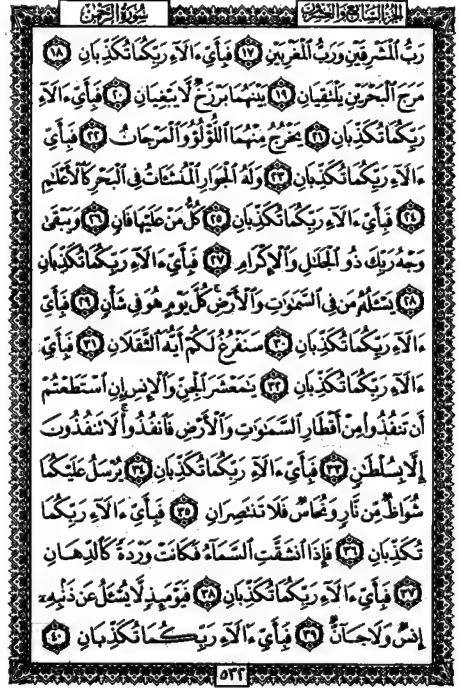 الجزء السابع والعشرون سورة الرحمن
رَبُّ ٱلْمَشْرِقَيْنِ وَرَبُّ ٱلْمَغْرِبَيْنِ ١٧ فَبِأَيِّ ءَالَآءِ رَبِّكُمَا تُكَذِّبَانِ ١٨
مَرَجَ ٱلْبَحْرَيْنِ يَلْتَقِيَانِ ١٩ بَيْنَهُمَا بَرْزَخٌ لَّا يَبْغِيَانِ ٢٠ فَبِأَيِّ ءَالَآءِ
رَبِّكُمَا تُكَذِّبَانِ ٢١ يَخْرُجُ مِنْهُمَا ٱللُّؤْلُؤُ وَٱلْمَرْجَانُ ٢٢ فَبِأَيِّ
ءَالَآءِ رَبِّكُمَا تُكَذِّبَانِ ٢٣ وَلَهُ ٱلْجَوَارِ ٱلْمُنشَـَٔاتُ فِى ٱلْبَحْرِ كَٱلْأَعْلَٰمِ
٢٤ فَبِأَيِّ ءَالَآءِ رَبِّكُمَا تُكَذِّبَانِ ٢٥ كُلُّ مَنْ عَلَيْهَا فَانٍ ٢٦ وَيَبْقَىٰ
وَجْهُ رَبِّكَ ذُو ٱلْجَلَٰلِ وَٱلْإِكْرَامِ ٢٧ فَبِأَيِّ ءَالَآءِ رَبِّكُمَا تُكَذِّبَانِ
٢٨ يَسْـَٔلُهُۥ مَن فِى ٱلسَّمَٰوَٰتِ وَٱلْأَرْضِ ۚ كُلَّ يَوْمٍ هُوَ فِى شَأْنٍ ٢٩ فَبِأَيِّ
ءَالَآءِ رَبِّكُمَا تُكَذِّبَانِ ٣٠ سَنَفْرُغُ لَكُمْ أَيُّهَ ٱلثَّقَلَانِ ٣١ فَبِأَيِّ
ءَالَآءِ رَبِّكُمَا تُكَذِّبَانِ ٣٢ يَٰمَعْشَرَ ٱلْجِنِّ وَٱلْإِنسِ إِنِ ٱسْتَطَعْتُمْ
أَن تَنفُذُوا۟ مِنْ أَقْطَارِ ٱلسَّمَٰوَٰتِ وَٱلْأَرْضِ فَٱنفُذُوا۟ ۚ لَا تَنفُذُونَ
إِلَّا بِسُلْطَٰنٍ ٣٣ فَبِأَيِّ ءَالَآءِ رَبِّكُمَا تُكَذِّبَانِ ٣٤ يُرْسَلُ عَلَيْكُمَا
شُوَاظٌ مِّن نَّارٍ وَنُحَاسٌ فَلَا تَنتَصِرَانِ ٣٥ فَبِأَيِّ ءَالَآءِ رَبِّكُمَا
تُكَذِّبَانِ ٣٦ فَإِذَا ٱنشَقَّتِ ٱلسَّمَآءُ فَكَانَتْ وَرْدَةً كَٱلدِّهَانِ
٣٧ فَبِأَيِّ ءَالَآءِ رَبِّكُمَا تُكَذِّبَانِ ٣٨ فَيَوْمَئِذٍ لَّا يُسْـَٔلُ عَن ذَنۢبِهِۦٓ
إِنسٌ وَلَا جَآنٌّ ٣٩ فَبِأَيِّ ءَالَآءِ رَبِّكُمَا تُكَذِّبَانِ ٤٠
٥٣٢